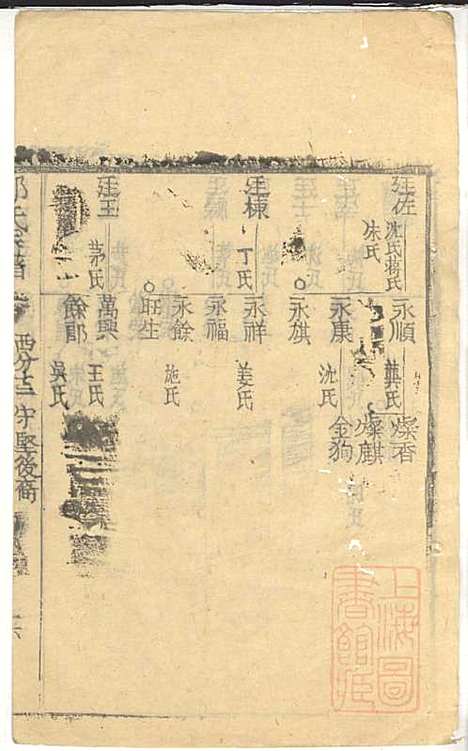 廷佐
沈氏蔣氏
朱氏
永順
龔氏
燦香
燦麒
永康
沈氏
金狗
永祺
廷棟
丁氏
永祥
姜氏
永福
永餘
施氏
旺生
廷玉
茅氏
萬興
王氏
餘郎
吳氏
氏宗譜
中堅後裔
上海圖
書館藏